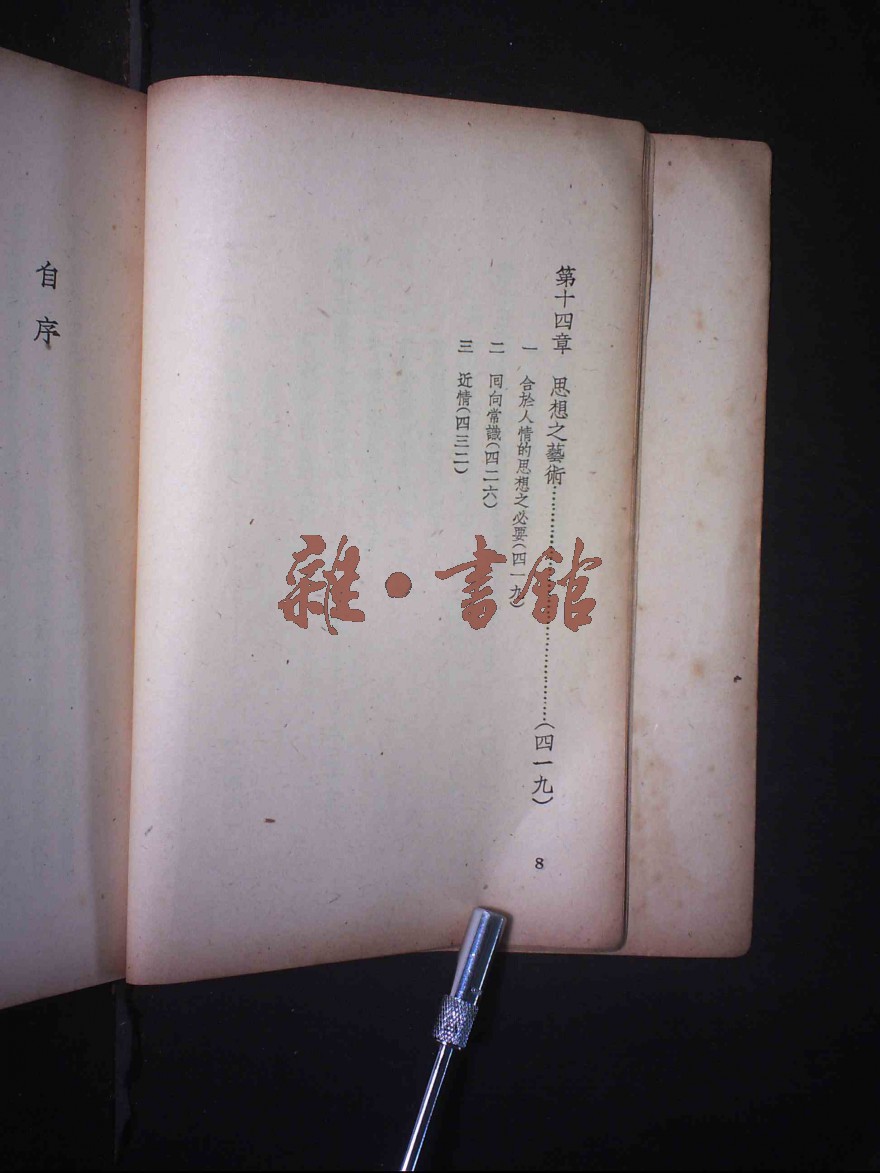 第十四章 思想之藝術……………………(四一九)
一 合於人情的思想之必要(四一九)
二 囘向常識(四二六)
三 近情(四三二)
8
自序
雜·書館